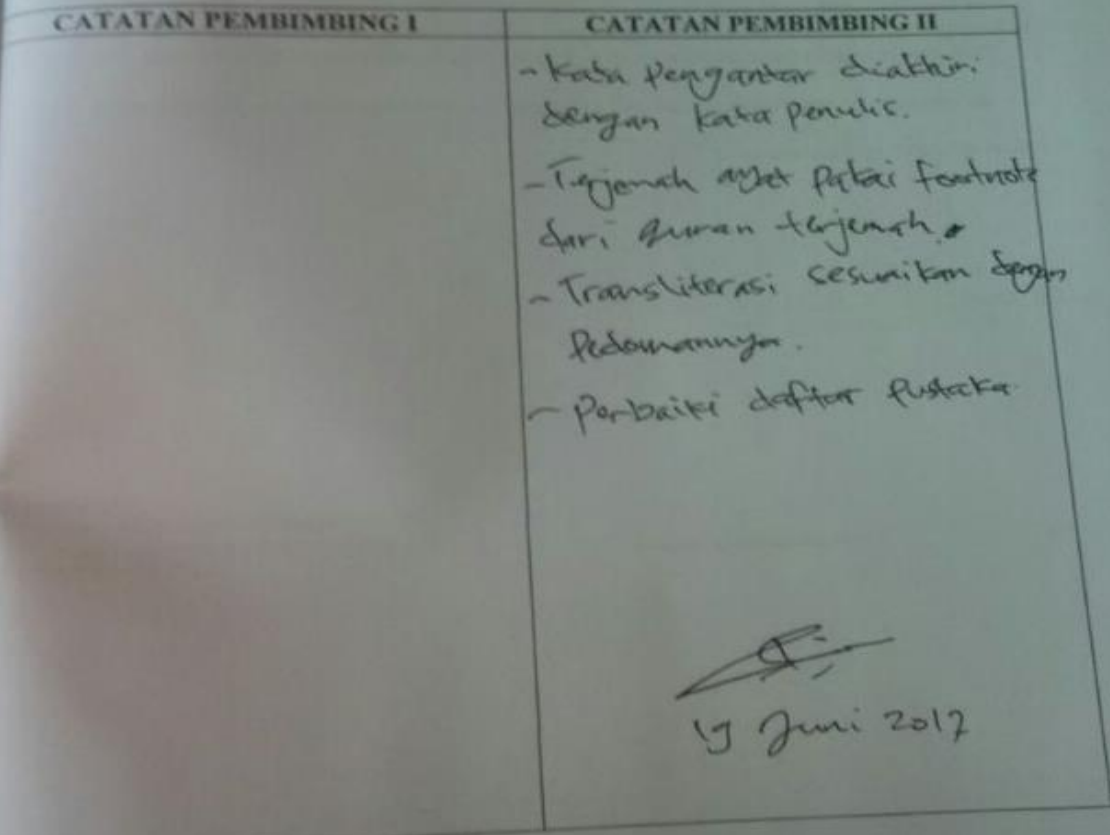 CATATAN PEMBIMBING I
CATATAN PEMBIMBING II
- Kata Pengantar diakhiri
dengan kata Penulis.
- Terjemah ayat Pakai footnote
dari Quran terjemah.
- Transliterasi sesuaikan dengan
Pedomannya.
- Perbaiki daftar Pustaka
19 Juni 2017